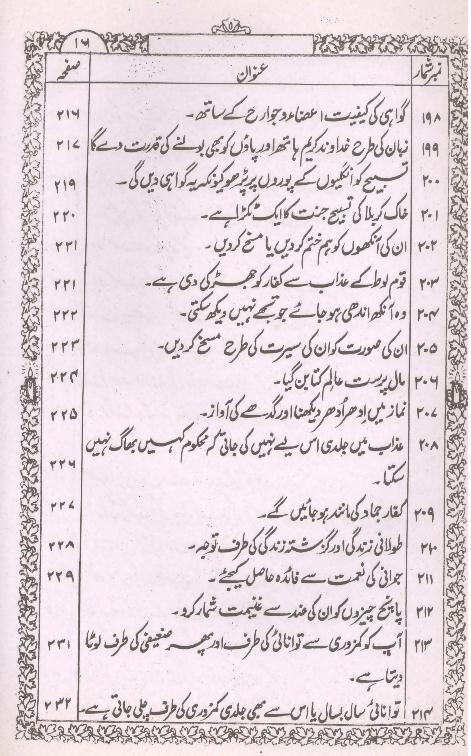 ۱۶
نمبر شمار عنوان صفحہ
۱۹۸ گواہی کی کیفیت اعضاء و جوارح کے ساتھ۔ ۲۱۶
۱۹۹ زبان کی طرح خداوند کریم ہاتھ اور پاؤں کو بھی بولنے کی قدرت دے گا ۲۱۷
۲۰۰ تسبیح کو انگلیوں کے پوروں پر پڑھو کیونکہ یہ گواہی دیں گی۔ ۲۱۹
۲۰۱ خاک کربلا کی تسبیح جنت کا ایک ٹکڑا ہے۔ ۲۲۰
۲۰۲ ان کی آنکھوں کو ہم ختم کر دیں یا مسخ کر دیں۔ ۲۲۱
۲۰۳ قوم لوط کے عذاب سے کفار کو جھڑکی دی ہے۔ ۲۲۱
۲۰۴ وہ آنکھ اندھی ہو جائے جو تجھے نہیں دیکھ سکتی۔ ۲۲۲
۲۰۵ ان کی صورت کو ان کی سیرت کی طرح مسخ کر دیں۔ ۲۲۳
۲۰۶ مال پرست عالم کتا بن گیا۔ ۲۲۴
۲۰۷ نماز میں اِدھر اُدھر دیکھنا اور گدھے کی آواز۔ ۲۲۵
۲۰۸ عذاب میں جلدی اس لیے نہیں کی جاتی کہ محکوم کہیں بھاگ نہیں
سکتا۔ ۲۲۶
۲۰۹ کفار جماد کی مانند ہو جائیں گے۔ ۲۲۷
۲۱۰ طولانی زندگی اور گزشتہ زندگی کی طرف توجہ۔ ۲۲۸
۲۱۱ جوانی کی نعمت سے فائدہ حاصل کیجئے۔ ۲۲۹
۲۱۲ پانچ چیزوں کو ان کی ضد سے غنیمت شمار کرو۔
۲۱۳ آپ کو کمزوری سے توانائی کی طرف اور پھر ضعیفی کی طرف لوٹا ۲۳۱
دیتا ہے۔
۲۱۴ توانائی سال بسال یا اس سے بھی جلدی کمزوری کی طرف چلی جاتی ہے۔ ۲۳۲